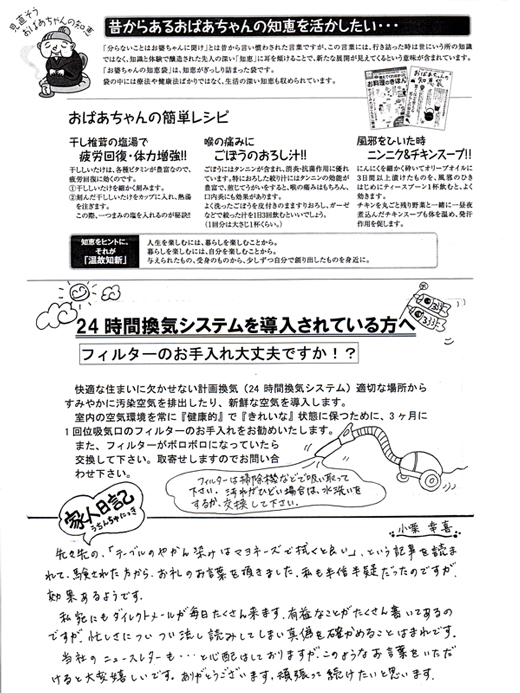 見直そう
おばあちゃんの知恵
昔からあるおばあちゃんの知恵を活かしたい・・・
「分らないことはお婆ちゃんに聞け」とは昔から言い慣わされた言葉ですが、この言葉には、行き詰った時は昔にいう所の知識
ではなく、知識と体験で醸造された先人の深い「知恵」に耳を傾けることで、新たな展開が見えてくるという意味が含まれています。
「お婆ちゃんの知恵袋」は、知恵がぎっしり詰まった袋です。
袋の中には療法や健康法ばかりではなく、生活の深い知恵も収められています。
おばあちゃんの簡単レシピ
干し椎茸の塩湯で
疲労回復・体力増強!!
干ししいたけは、各種ビタミンが豊富なので、
疲労回復に効くのです。
①干ししいたけを細かく刻みます。
②刻んだ干ししいたけをカップに入れ、熱湯
を注ぎます。
この際、一つまみの塩を入れるのが秘訣!
喉の痛みに
ごぼうのおろし汁!!
ごぼうにはタンニンが含まれ、消炎・抗菌作用に優れ
ています。特におろした絞り汁にはタンニンの効能が
豊富で、煎じてうがいをすると、喉の痛みはもちろん、
口内炎にも効果があります。
よく洗ったごぼうを皮付きのまますりおろし、ガーゼ
などで絞った汁を1日3回飲むといいでしょう。
(1回分は大さじ1杯くらい。)
お料理のきほん
おばあちゃんの
知恵袋
風邪をひいた時
ニンニク&チキンスープ!!
にんにくを細かく砕いてオリーブオイルに
3日間以上漬けたものを、風邪のひき
はじめにティースプーン1杯飲むと、よく
効きます。
チキンを丸ごと残り野菜と一緒に一昼夜
煮込んだチキンスープも体を温め、発汗
作用を促します。
知恵をヒントに、
それが
「温故知新」
人生を楽しむには、暮らしを楽しむことから。
暮らしを楽しむには、自分を楽しむことから。
与えられたもの、受身のものから、少しずつ自分で創り出したものを身近に。
24時間換気システムを導入されている方へ
フィルターのお手入れ大丈夫ですか！？
快適な住まいに欠かせない計画換気（24時間換気システム）適切な場所から
すみやかに汚染空気を排出したり、新鮮な空気を導入します。
室内の空気環境を常に『健康的』で『きれいな』状態に保つために、3ヶ月に
1回位吸気口のフィルターのお手入れをお勧めいたします。
また、フィルターがボロボロになっていたら
交換して下さい。取寄せしますのでお問い合
わせ下さい。
フィルターは掃除機などで吸い取って
下さい。汚れがひどい場合は、水洗いを
するか、交換して下さい。
家人日記
うちんちゅにっき
小栗 幸喜
先々先の、「テーブルのやかん染けはマヨネーズで拭くと良い」、という記事を読ま
れて、験された方から、お礼のお言葉を頂きました。私も半信半疑だったのですが、
効果あるようです。
私宛にもダイレクトメールが毎日たくさん来ます。有益なことがたくさん書いてあるの
ですが、忙しさについつい流し読みしてしまい真偽を確かめることはまれです。
当社のニュースレターも・・・と心配はしておりますが、このようなお言葉をいただ
けると大変嬉しいです。ありがとうございます。頑張って続けたいと思います。